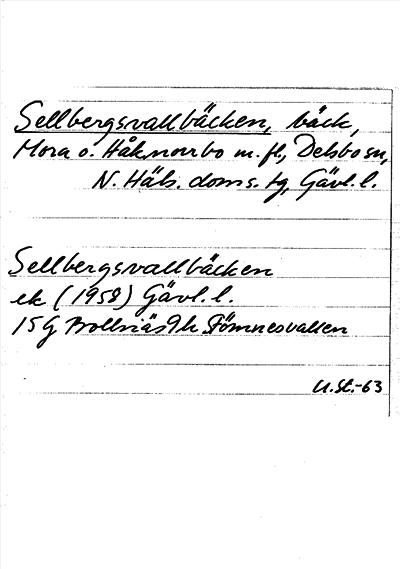 Sellbergsvallbäcken, bäck,
Mora o. Håknorrbo m. fl., Delsbo sn,
N. Häls. doms. tg, Gävl. l.
Sellbergsvallbäcken
ek (1958) Gävl. l.
15 G Bollnäs 9h Stömnesvallen
U.St.-63